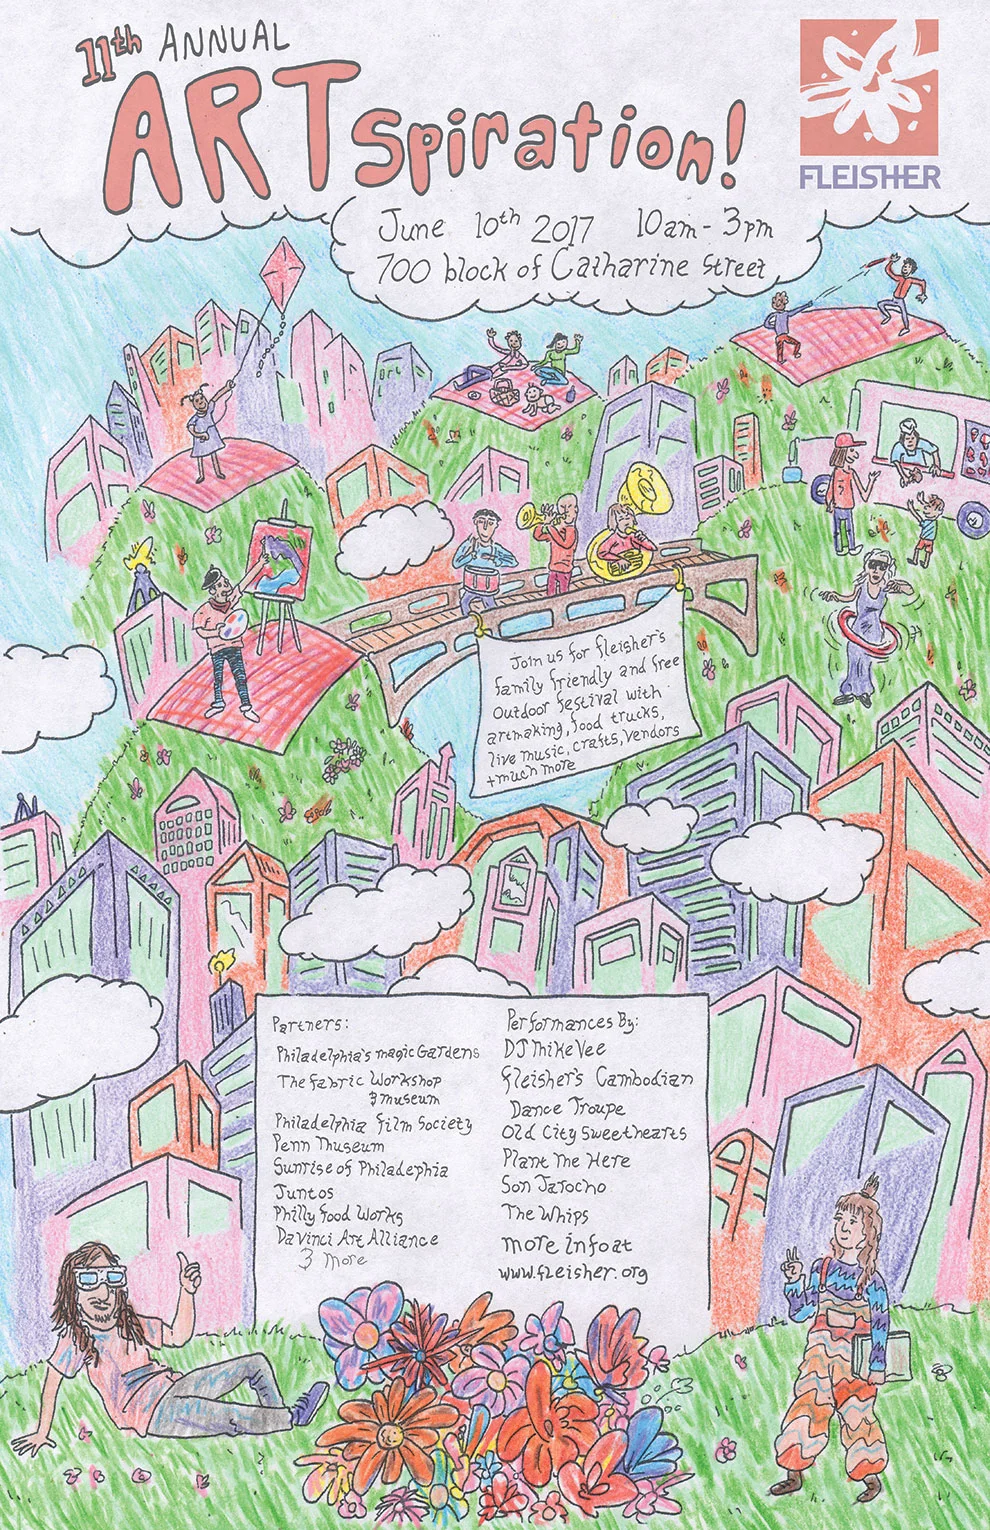 11th ANNUAL
ARTspiration!
FLEISHER
June 10th 2017 10am - 3pm
700 block of Catharine Street
Join us for fleisher's
family friendly and free
outdoor festival with
artmaking, food trucks,
live music, crafts, vendors
+ much more
Partners:
Philadelphia's magic Gardens
The Fabric Workshop
& museum
Philadelphia film Society
Penn Museum
Sunrise of Philadephia
Juntos
Philly Food Works
DaVinci Art Alliance
& More
Performances By:
DJ Mike Vee
Fleisher's Cambodian
Dance Troupe
Old City Sweethearts
Plant Me Here
Son Jarocho
The Whips
more info at
www.fleisher.org